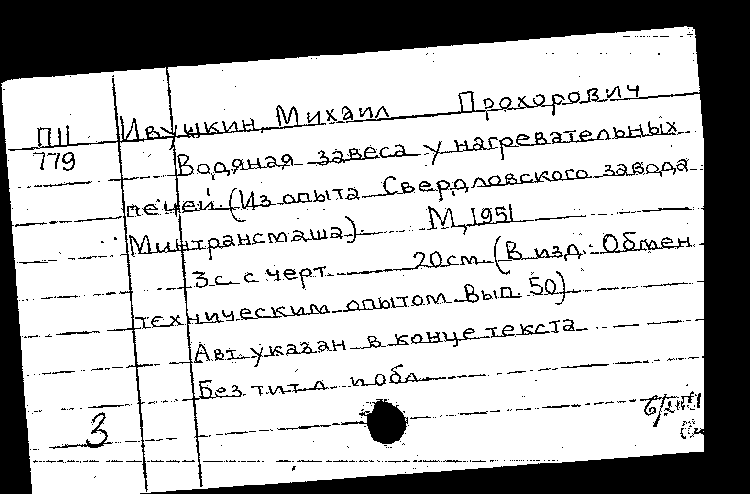 П11
779
Ивушкин, Михаил Прохорович
Водяная завеса у нагревательных
печей (Из опыта Свердловского завода
Минтрансмаша). М, 1951
3с с черт 20см (В изд.: Обмен
техническим опытом Вып. 50)
Авт. указан в конце текста
Без тит л и обл
3